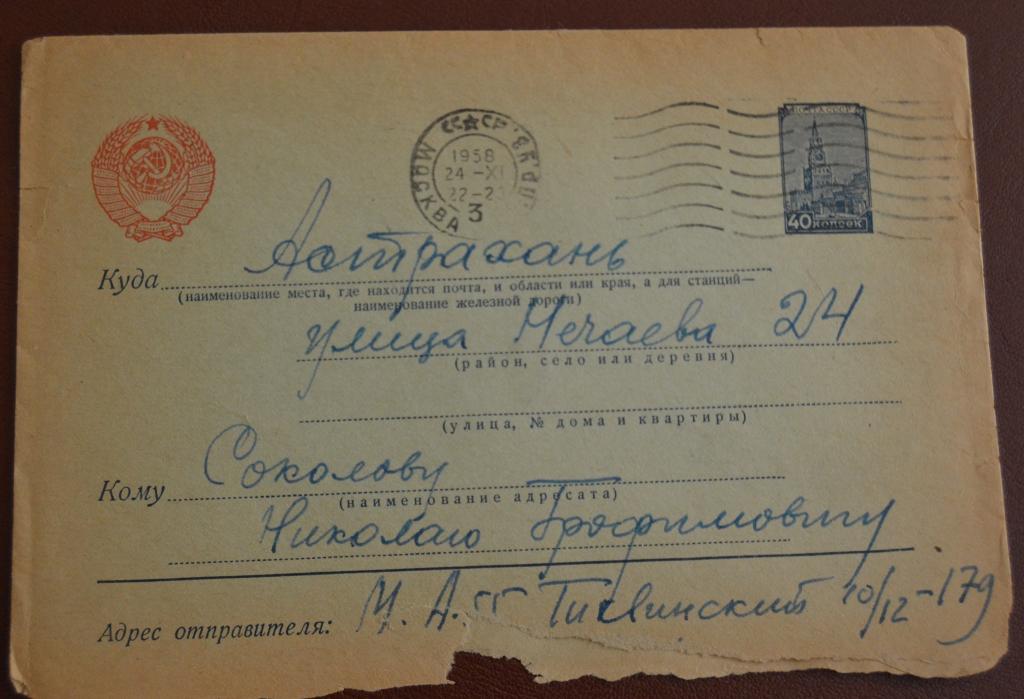 МОСКВА СССР
1958
24 -XI
3
ПОЧТА СССР
40 копеек
Куда Астрахань
(наименование места, где находится почта, и области или края, а для станций—
наименование железной дороги)
улица Нечаева 24
(район, село или деревня)
(улица, № дома и квартиры)
Кому Соколову
(наименование адресата)
Николаю Трофимовичу
Адрес отправителя: М. А. Тихвинский 10/12-179